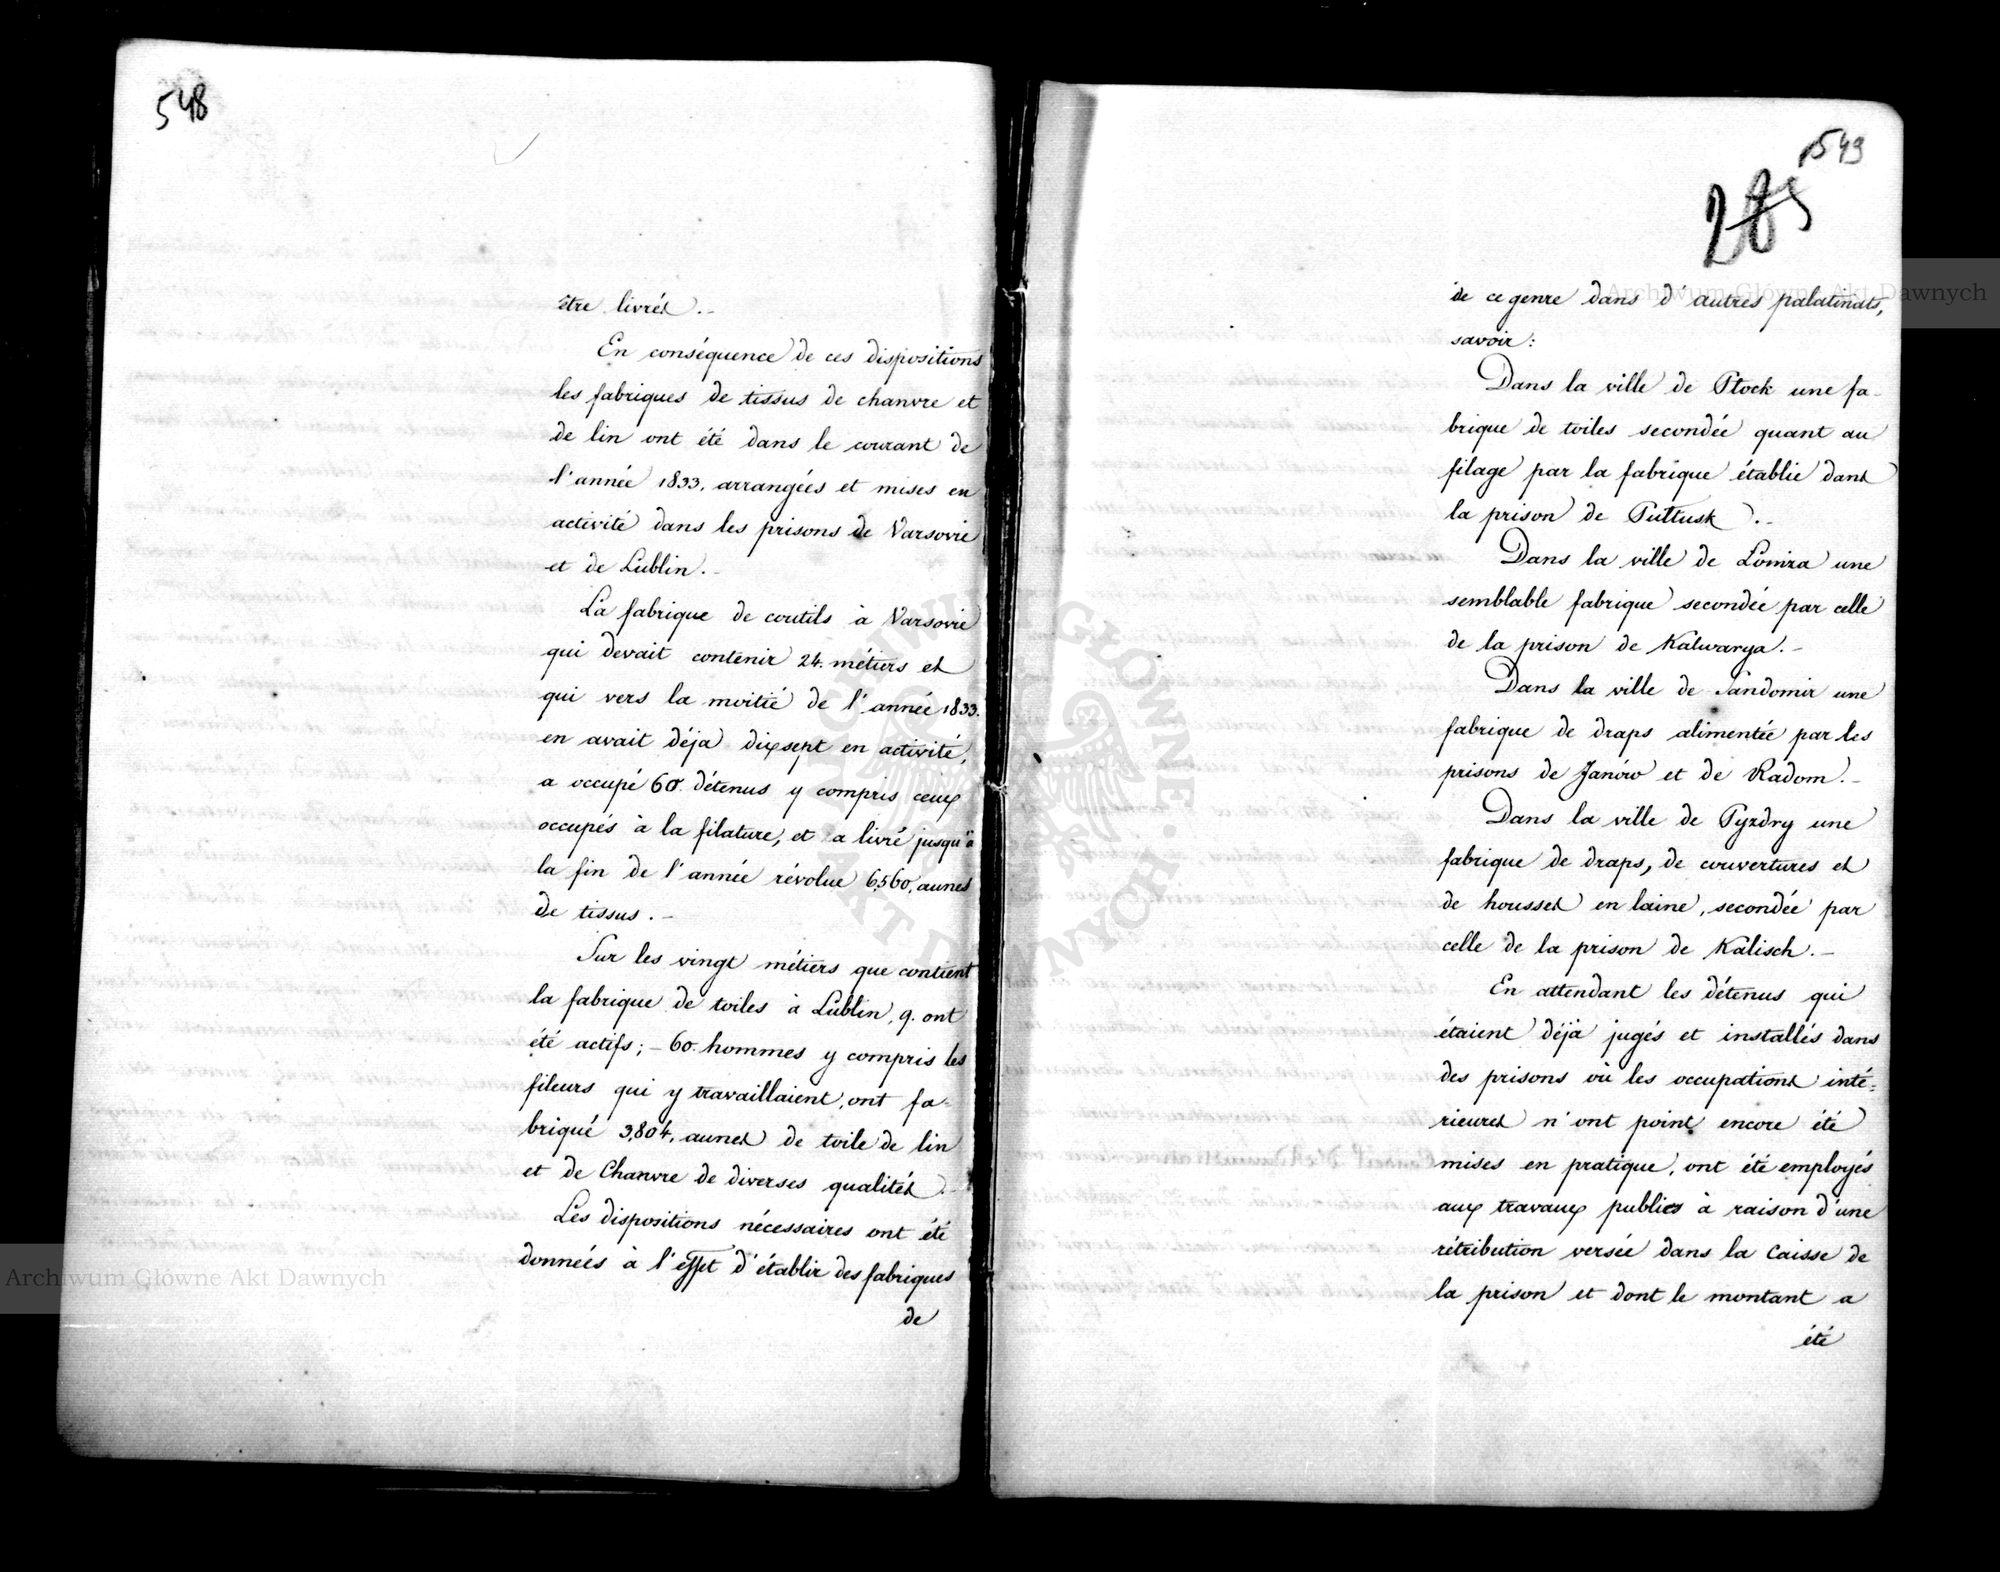 548
être livrés.-
En conséquence de ces dispositions
les fabriques de tissus de chanvre et
de lin ont été dans le courant de
l'année 1833, arrangées et mises en
activité dans les prisons de Varsovie
et de Lublin.-
La fabrique de coutils à Varsovie
qui devait contenir 24. métiers et
qui vers la moitié de l'année 1833.
en avait déja dixsept en activité,
a occupé 60. détenus y compris ceux
occupés à la filature, et a livré jusqu'à
la fin de l'année révolue 6,560, aunes
de tissus.-
Sur les vingt métiers que contient
la fabrique de toiles à Lublin, 9. ont
été actifs; - 60. hommes y compris les
fileurs qui y travaillaient, ont fa-
briqué 3,804, aunes de toile de lin
et de Chanvre de diverses qualités.-
Les dispositions nécessaires ont été
données à l'effet d'établir des fabriques
de
549
285
de ce genre dans d'autres palatinats,
savoir:
Dans la ville de Plock une fa-
brique de toiles secondée quant au
filage par la fabrique établie dans
la prison de Pultusk.-
Dans la ville de Łomza une
semblable fabrique secondée par celle
de la prison de Kalwarya.-
Dans la ville de Sandomir une
fabrique de draps alimentée par les
prisons de Janów et de Radom.-
Dans la ville de Pyzdry une
fabrique de draps, de couvertures et
de housses en laine, secondée par
celle de la prison de Kalisch.-
En attendant les détenus qui
étaient déjà jugés et installés dans
des prisons où les occupations inté-
rieures n'ont point encore été
mises en pratique, ont été employés
aux travaux publics à raison d'une
rétribution versée dans la Caisse de
la prison et dont le montant a
été
Archiwum Główne Akt Dawnych
Archiwum Główne Akt Dawnych
ARCHIWUM GŁÓWNE • AKT DAWNYCH •